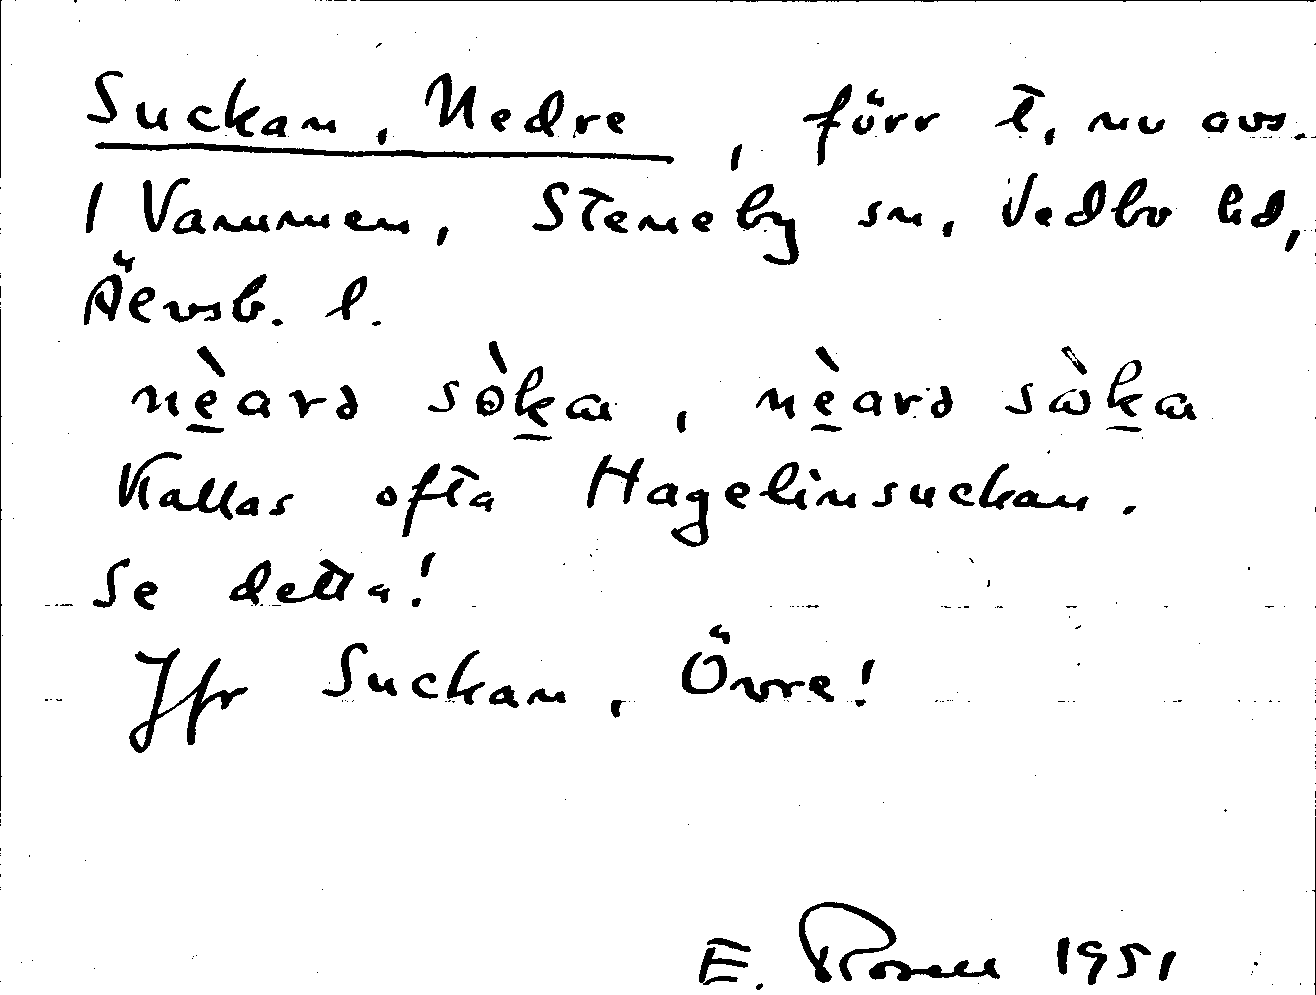 Suckan, Nedre, förr t, nu avs.
/ Vammen, Steneby sn, Vedbo hd,
Älvsb. l.
nèard sòka, nèard sàka
Kallas ofta Hagelinsuckan.
Se detta!
Jfr Suckan, Övre!
E. Rosell 1951